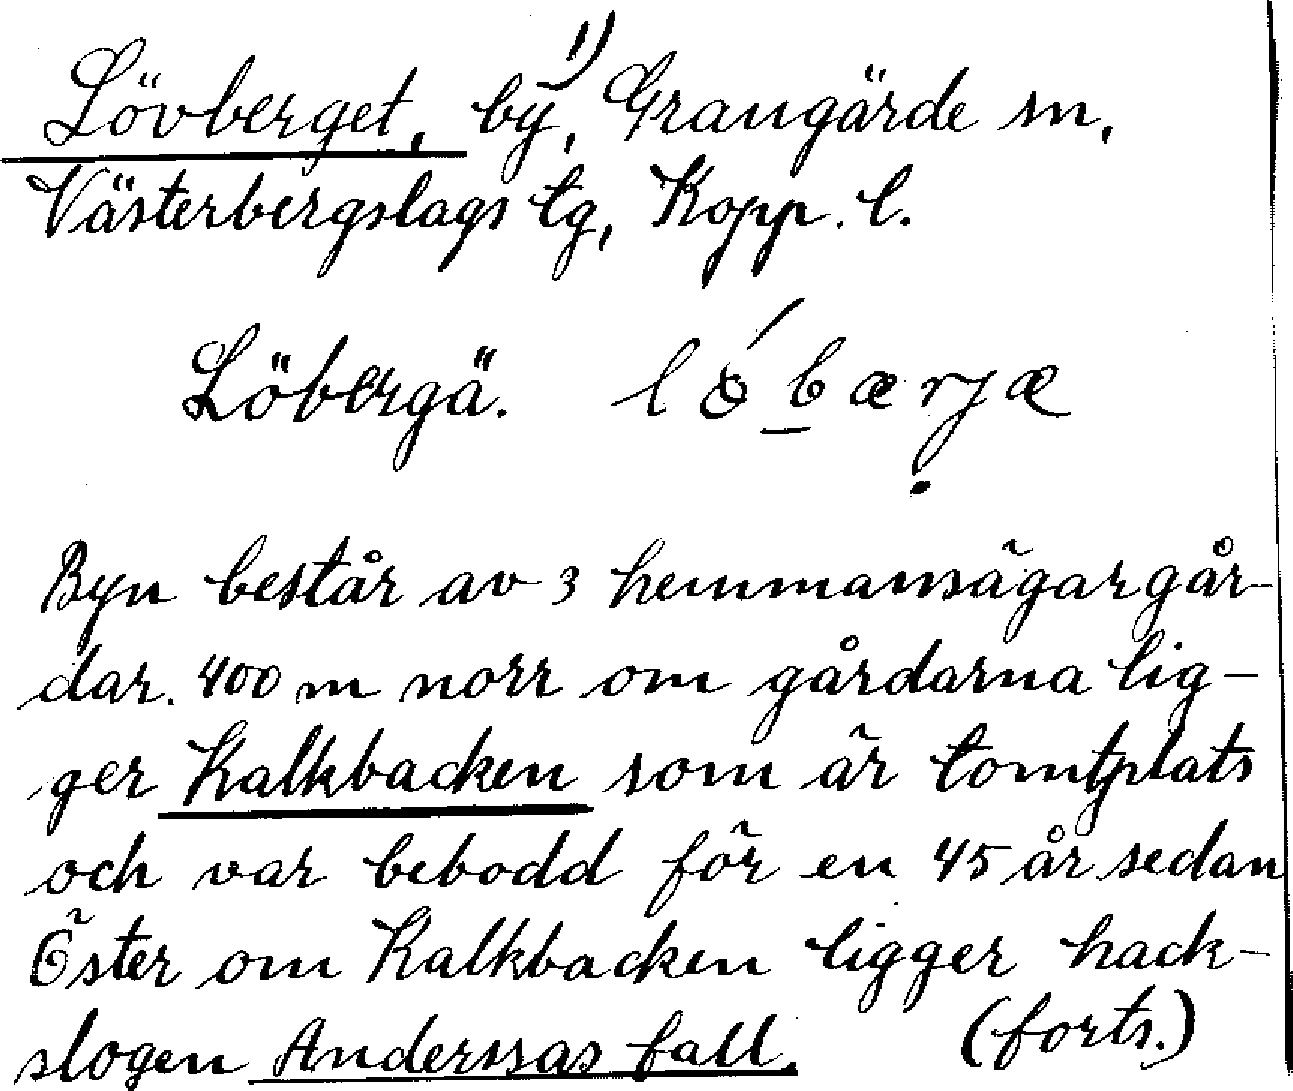 Lövberget, by, 1) Grangärde sn,
Västerbergslags tg, Kopp. l.
Löbergä.
Byn består av 3 hemmansägargår-
dar. 400 m norr om gårdarna lig-
ger Kalkbacken som är tomtplats
och var bebodd för en 45 år sedan
Öster om Kalkbacken ligger hack-
slogen Anderssas fall. (forts.)